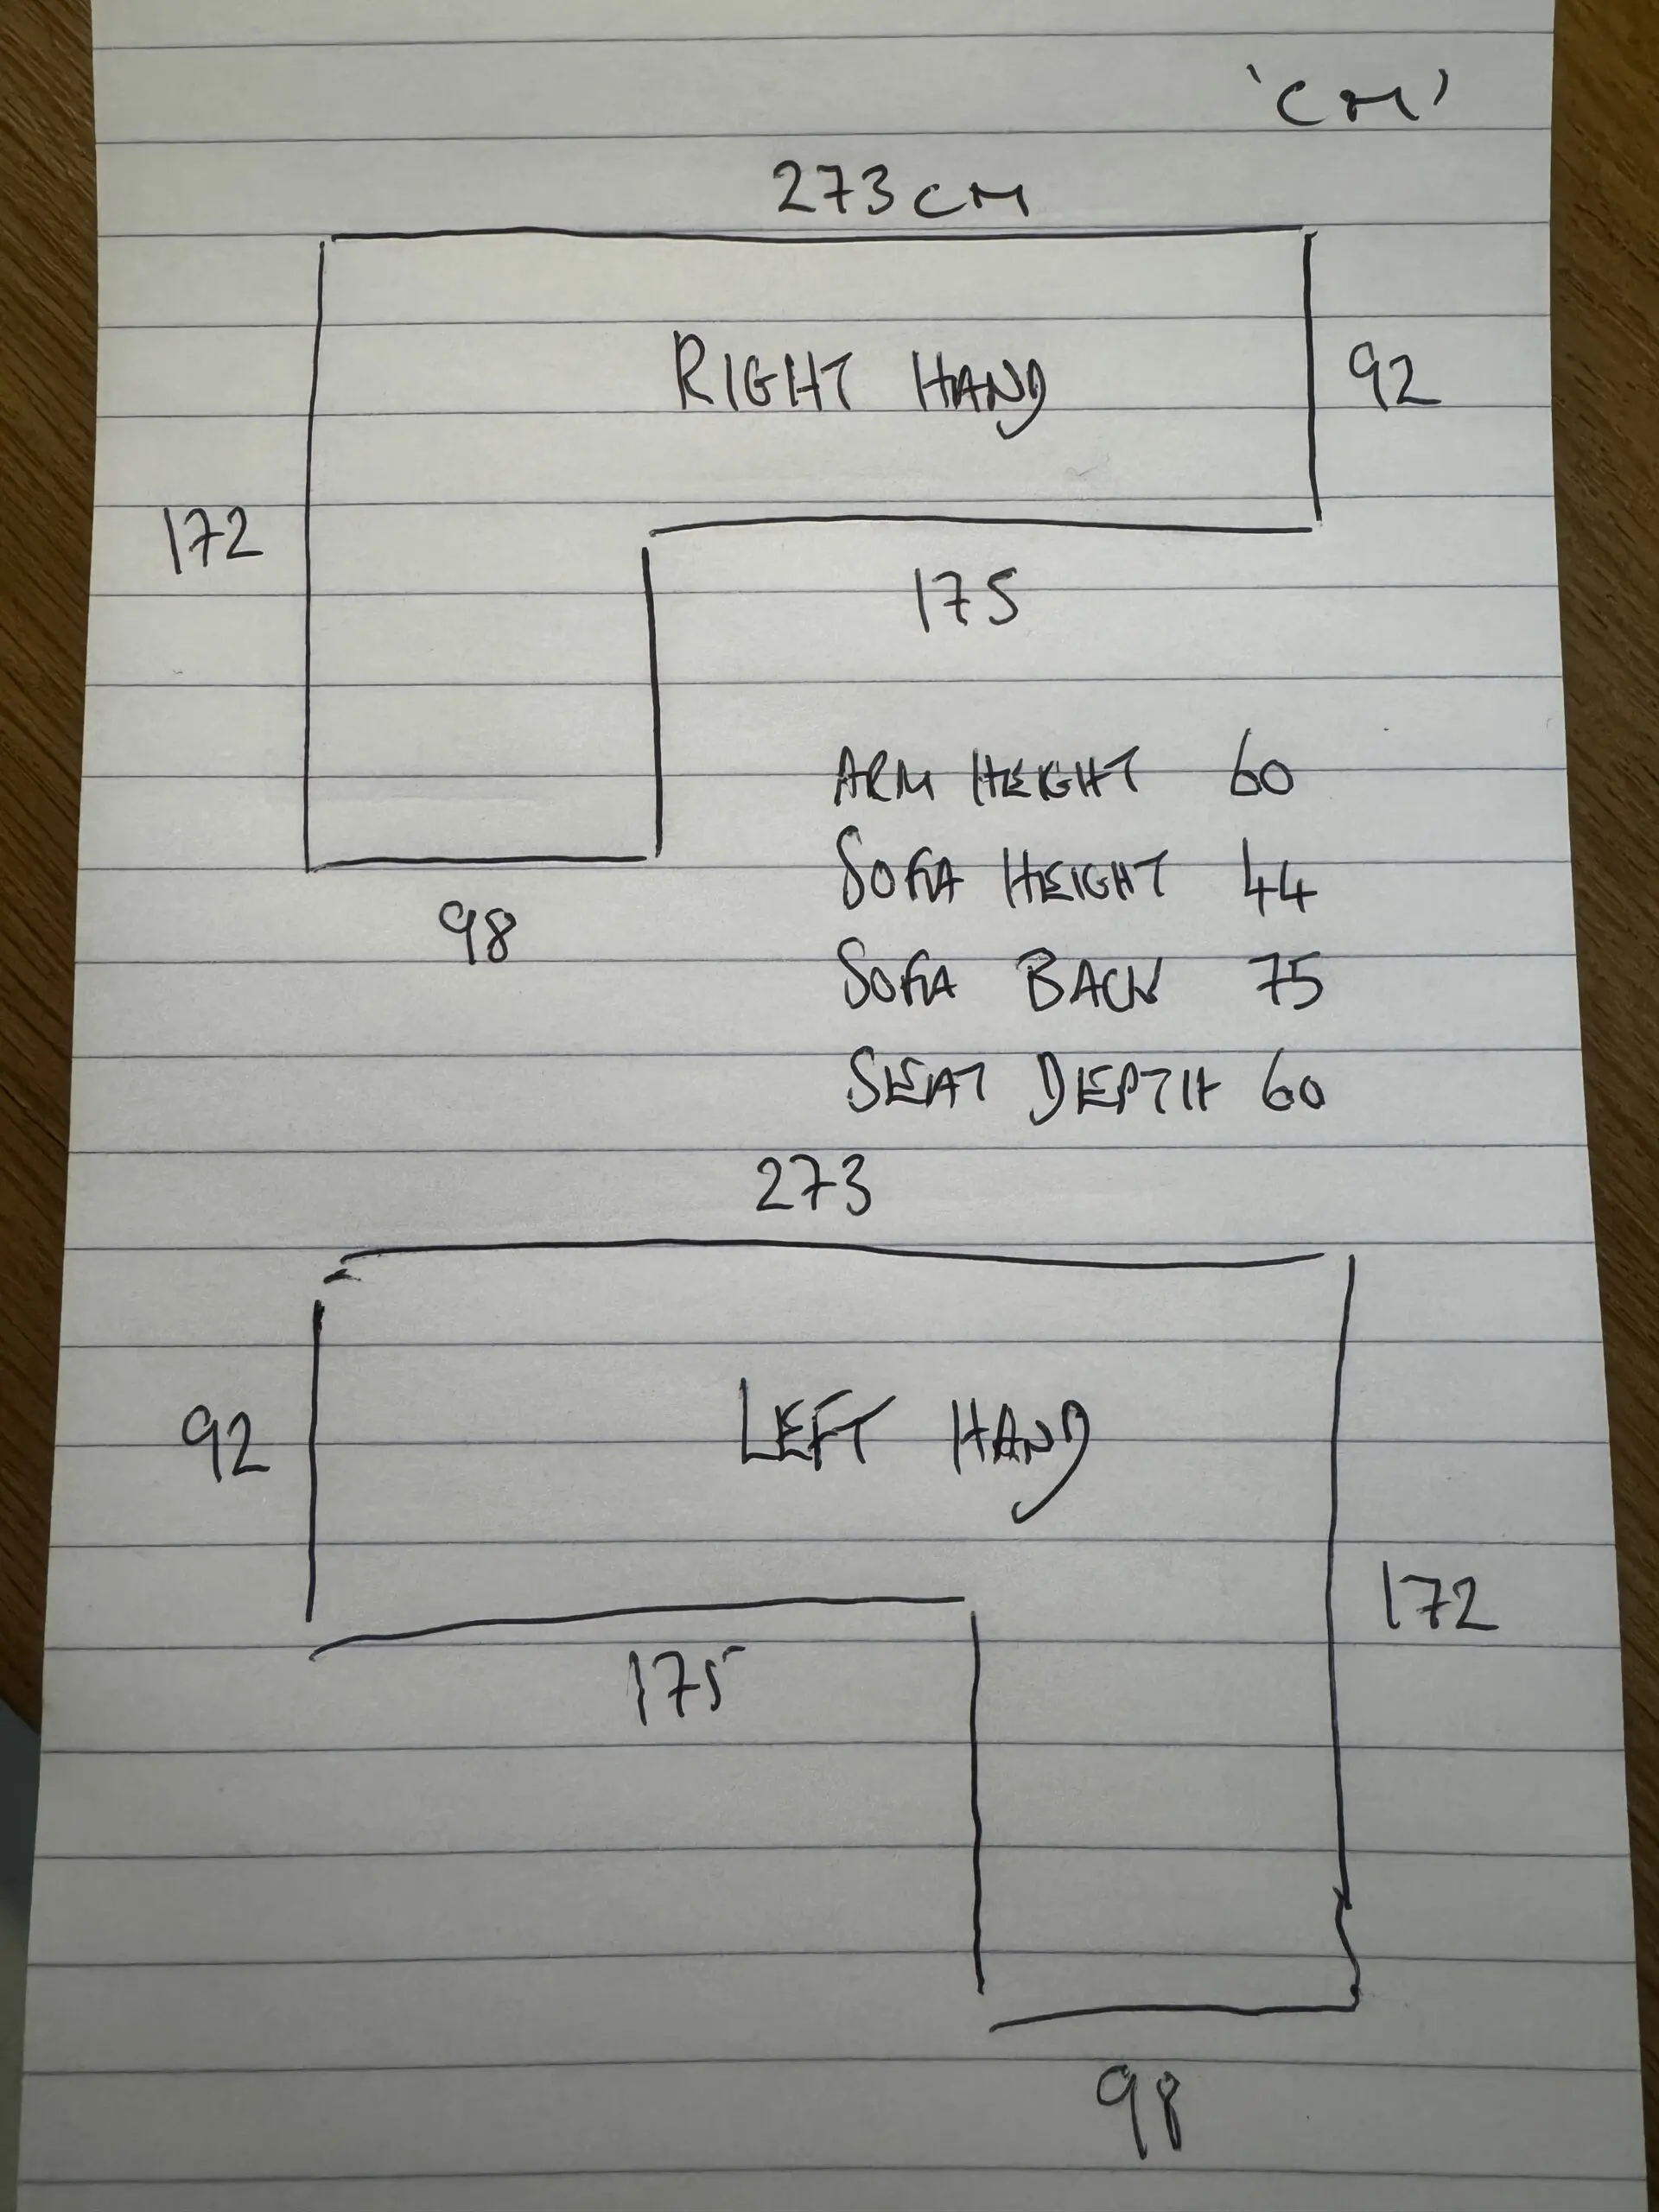 'CM'
273CM
RIGHT HAND
92
172
175
ARM HEIGHT 60
98
SOFA HEIGHT 44
SOFA BACK 75
SEAT DEPTH 60
273
LEFT HAND
92
172
175
98